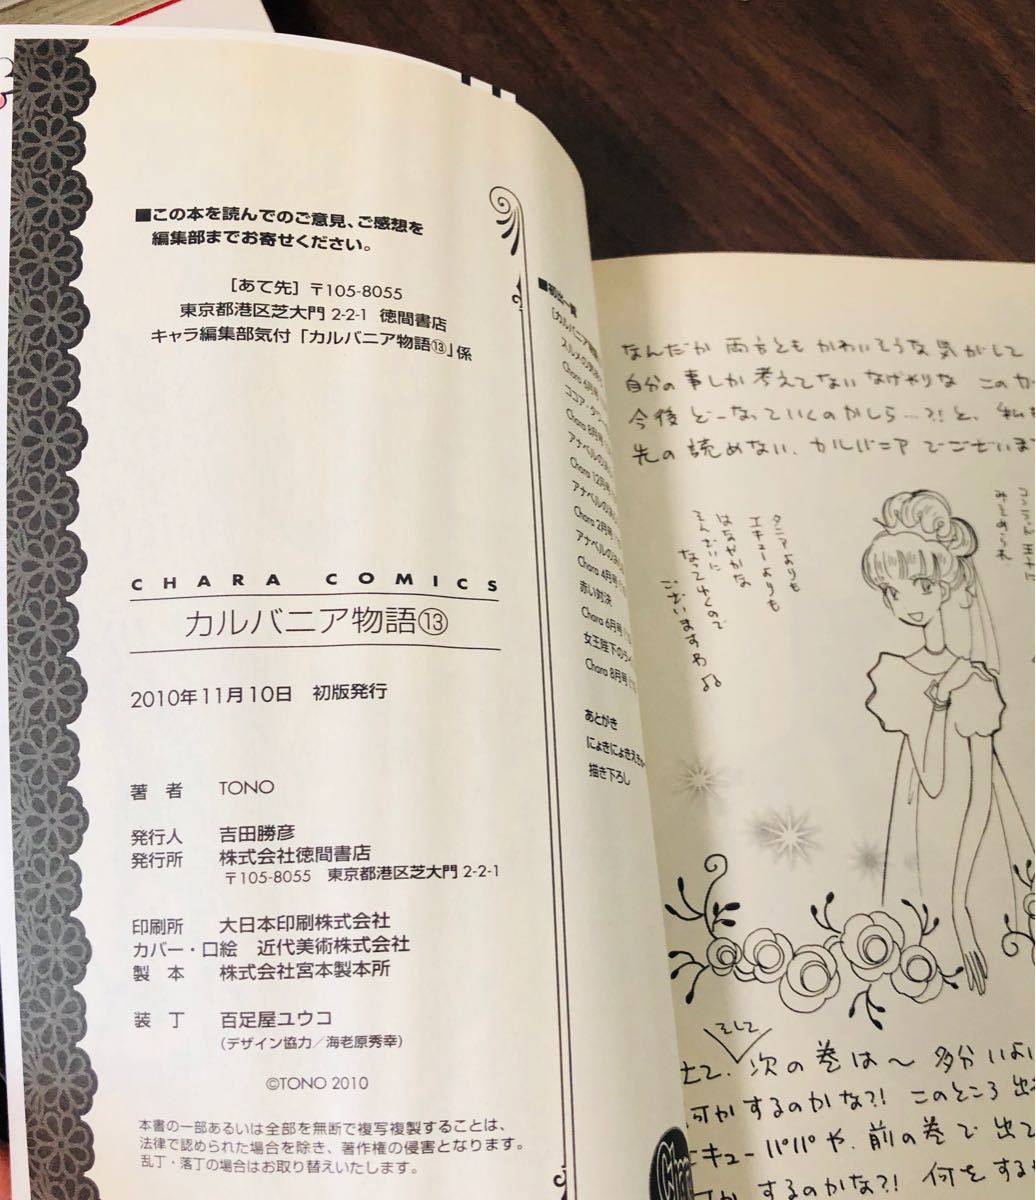 ■この本を読んでのご意見、ご感想を
編集部までお寄せください。
［あて先］〒105-8055
東京都港区芝大門 2-2-1 徳間書店
キャラ編集部気付「カルバニア物語⑬」係
CHARA COMICS
カルバニア物語⑬
2010年11月10日 初版発行
著者 TONO
発行人 吉田勝彦
発行所 株式会社徳間書店
〒105-8055 東京都港区芝大門 2-2-1
印刷所 大日本印刷株式会社
カバー・口絵 近代美術株式会社
製本 株式会社宮本製本所
装丁 百足屋ユウコ
(デザイン協力／海老原秀幸)
©TONO 2010
本書の一部あるいは全部を無断で複写複製することは、
法律で認められた場合を除き、著作権の侵害となります。
乱丁・落丁の場合はお取り替えいたします。
■初出一覧
カルバニア物語
Chara 6月号
ココア・
Chara 8月号
アナベルの
Chara 12月号
アナベルの
Chara 2月号
アナベルの
Chara 4月号
赤い対決
Chara 6月号
女王陛下の
Chara 8月号
あとがき
にょきにょきえきゅ
描き下ろし
なんだか 両方とも かわいそうな 気がして
自分の事しか 考えてない なげやりな このカ
今後 どーなっていくのかしら…?!と、私
先の読めない、カルバニア でございま
コンラッド王子に
みそめられ
タニアよりも
エキューよりも
はなやかな
そんざいに
なってゆくので
ございますわ♪
そして
さて、次の巻は〜 多分 いよ
何かするのかな?! このところ 出
エキューパパや、前の巻で 出て
するのかな?! 何をする